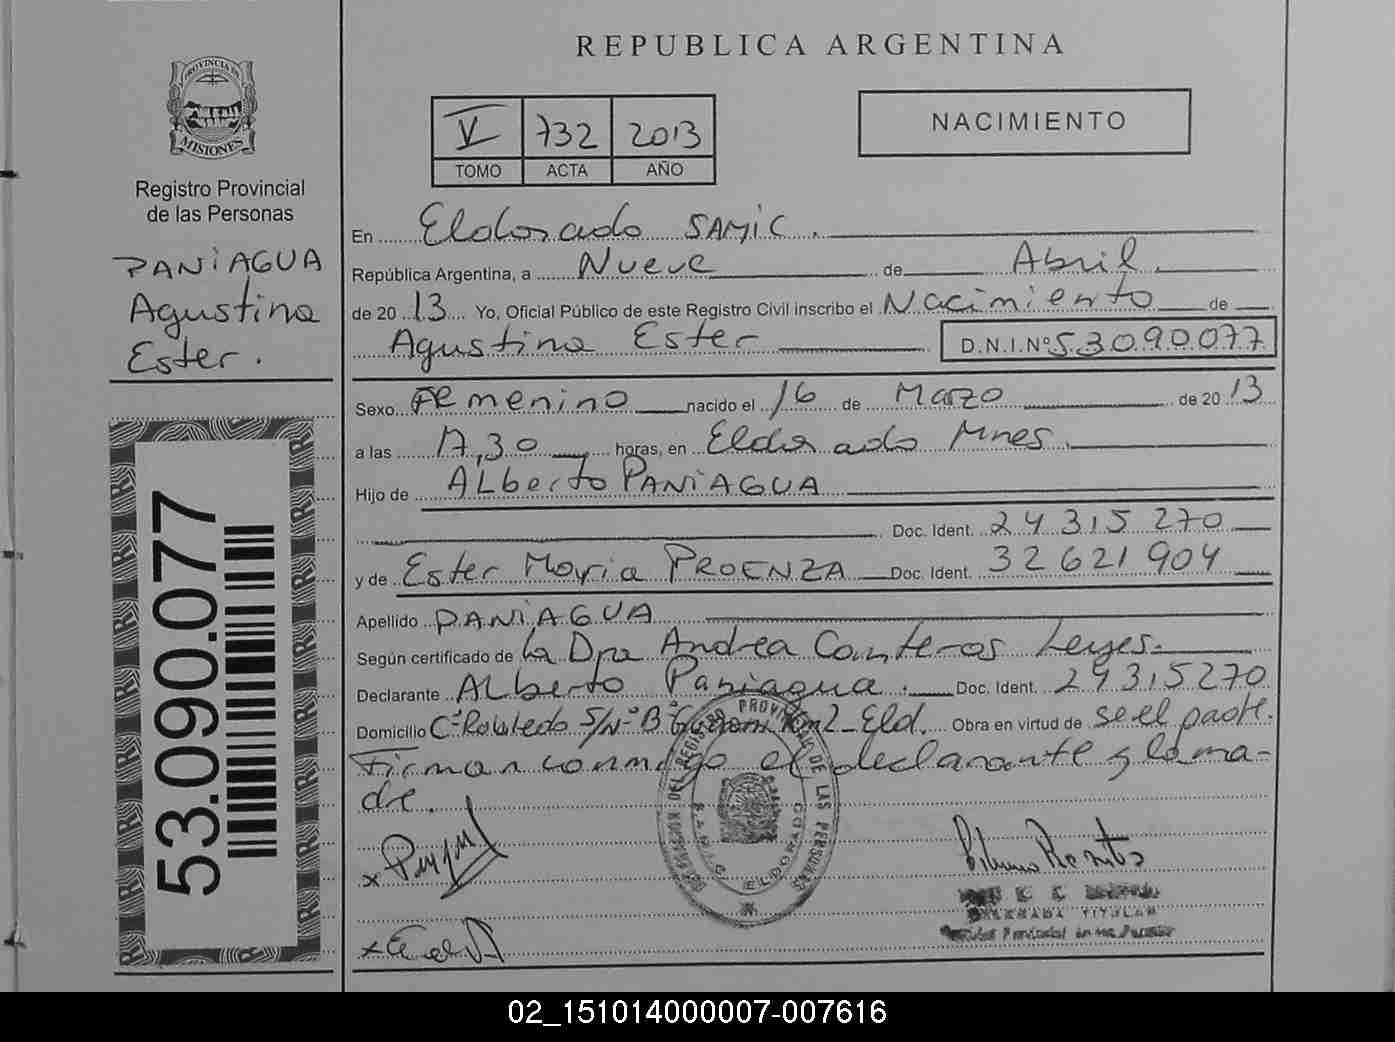 REPUBLICA ARGENTINA
PROVINCIA DE
MISIONES
Registro Provincial
de las Personas
PANiAGUA
Agustina
Ester.
53.090.077
V 732 2013
TOMO ACTA AÑO
NACIMIENTO
En Eldorado SAMiC.
República Argentina, a Nueve de Abril.
de 2013 Yo, Oficial Público de este Registro Civil inscribo el Nacimiento de
Agustina Ester D.N.I.Nº 53090077
Sexo Femenino nacido el 16 de Marzo de 2013
a las 17,30 horas, en Eldorado Mnes.
Hijo de ALberto PANiAGUA
Doc. Ident. 24315270
y de Ester Maria PROENZA Doc. Ident. 32621904
Apellido PANiAGUA
Según certificado de La Dra Andrea Contreras Leyes.
Declarante ALberto Paniagua. Doc. Ident. 24315270
Domicilio Cº Robledo S/Nº Bº Guarani Km2_Eld. Obra en virtud de se el padre.
Firman conmigo el declarante y la ma-
dre.
DEL REGISTRO PROVINCIAL DE LAS PERSONAS
S.A.M.I.C. ELDORADO
TITULAR
02_151014000007-007616